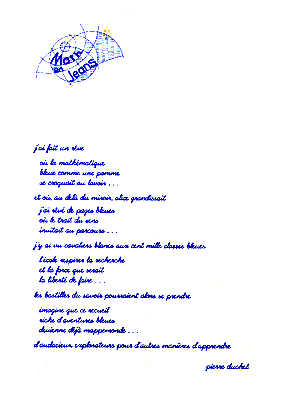 Math
en
Jeans
j'ai fait un rêve
où la mathématique
bleue comme une pomme
se croquait au lavoir . . .
et où, au delà du miroir, alice grandissait
j'ai rêvé de pages bleues
où le trait du sens
invitait au parcours . . .
j'y ai vu cavaliers blancs aux cent mille classes bleues
l'école respirer la recherche
et la force que serait
la liberté de faire . . .
les bastilles du savoir pourraient alors se prendre
imagine que ce recueil
riche d'aventures bleues
devienne déjà mappemonde . . .
d'audacieux explorateurs pour d'autres manières d'apprendre
pierre duchet